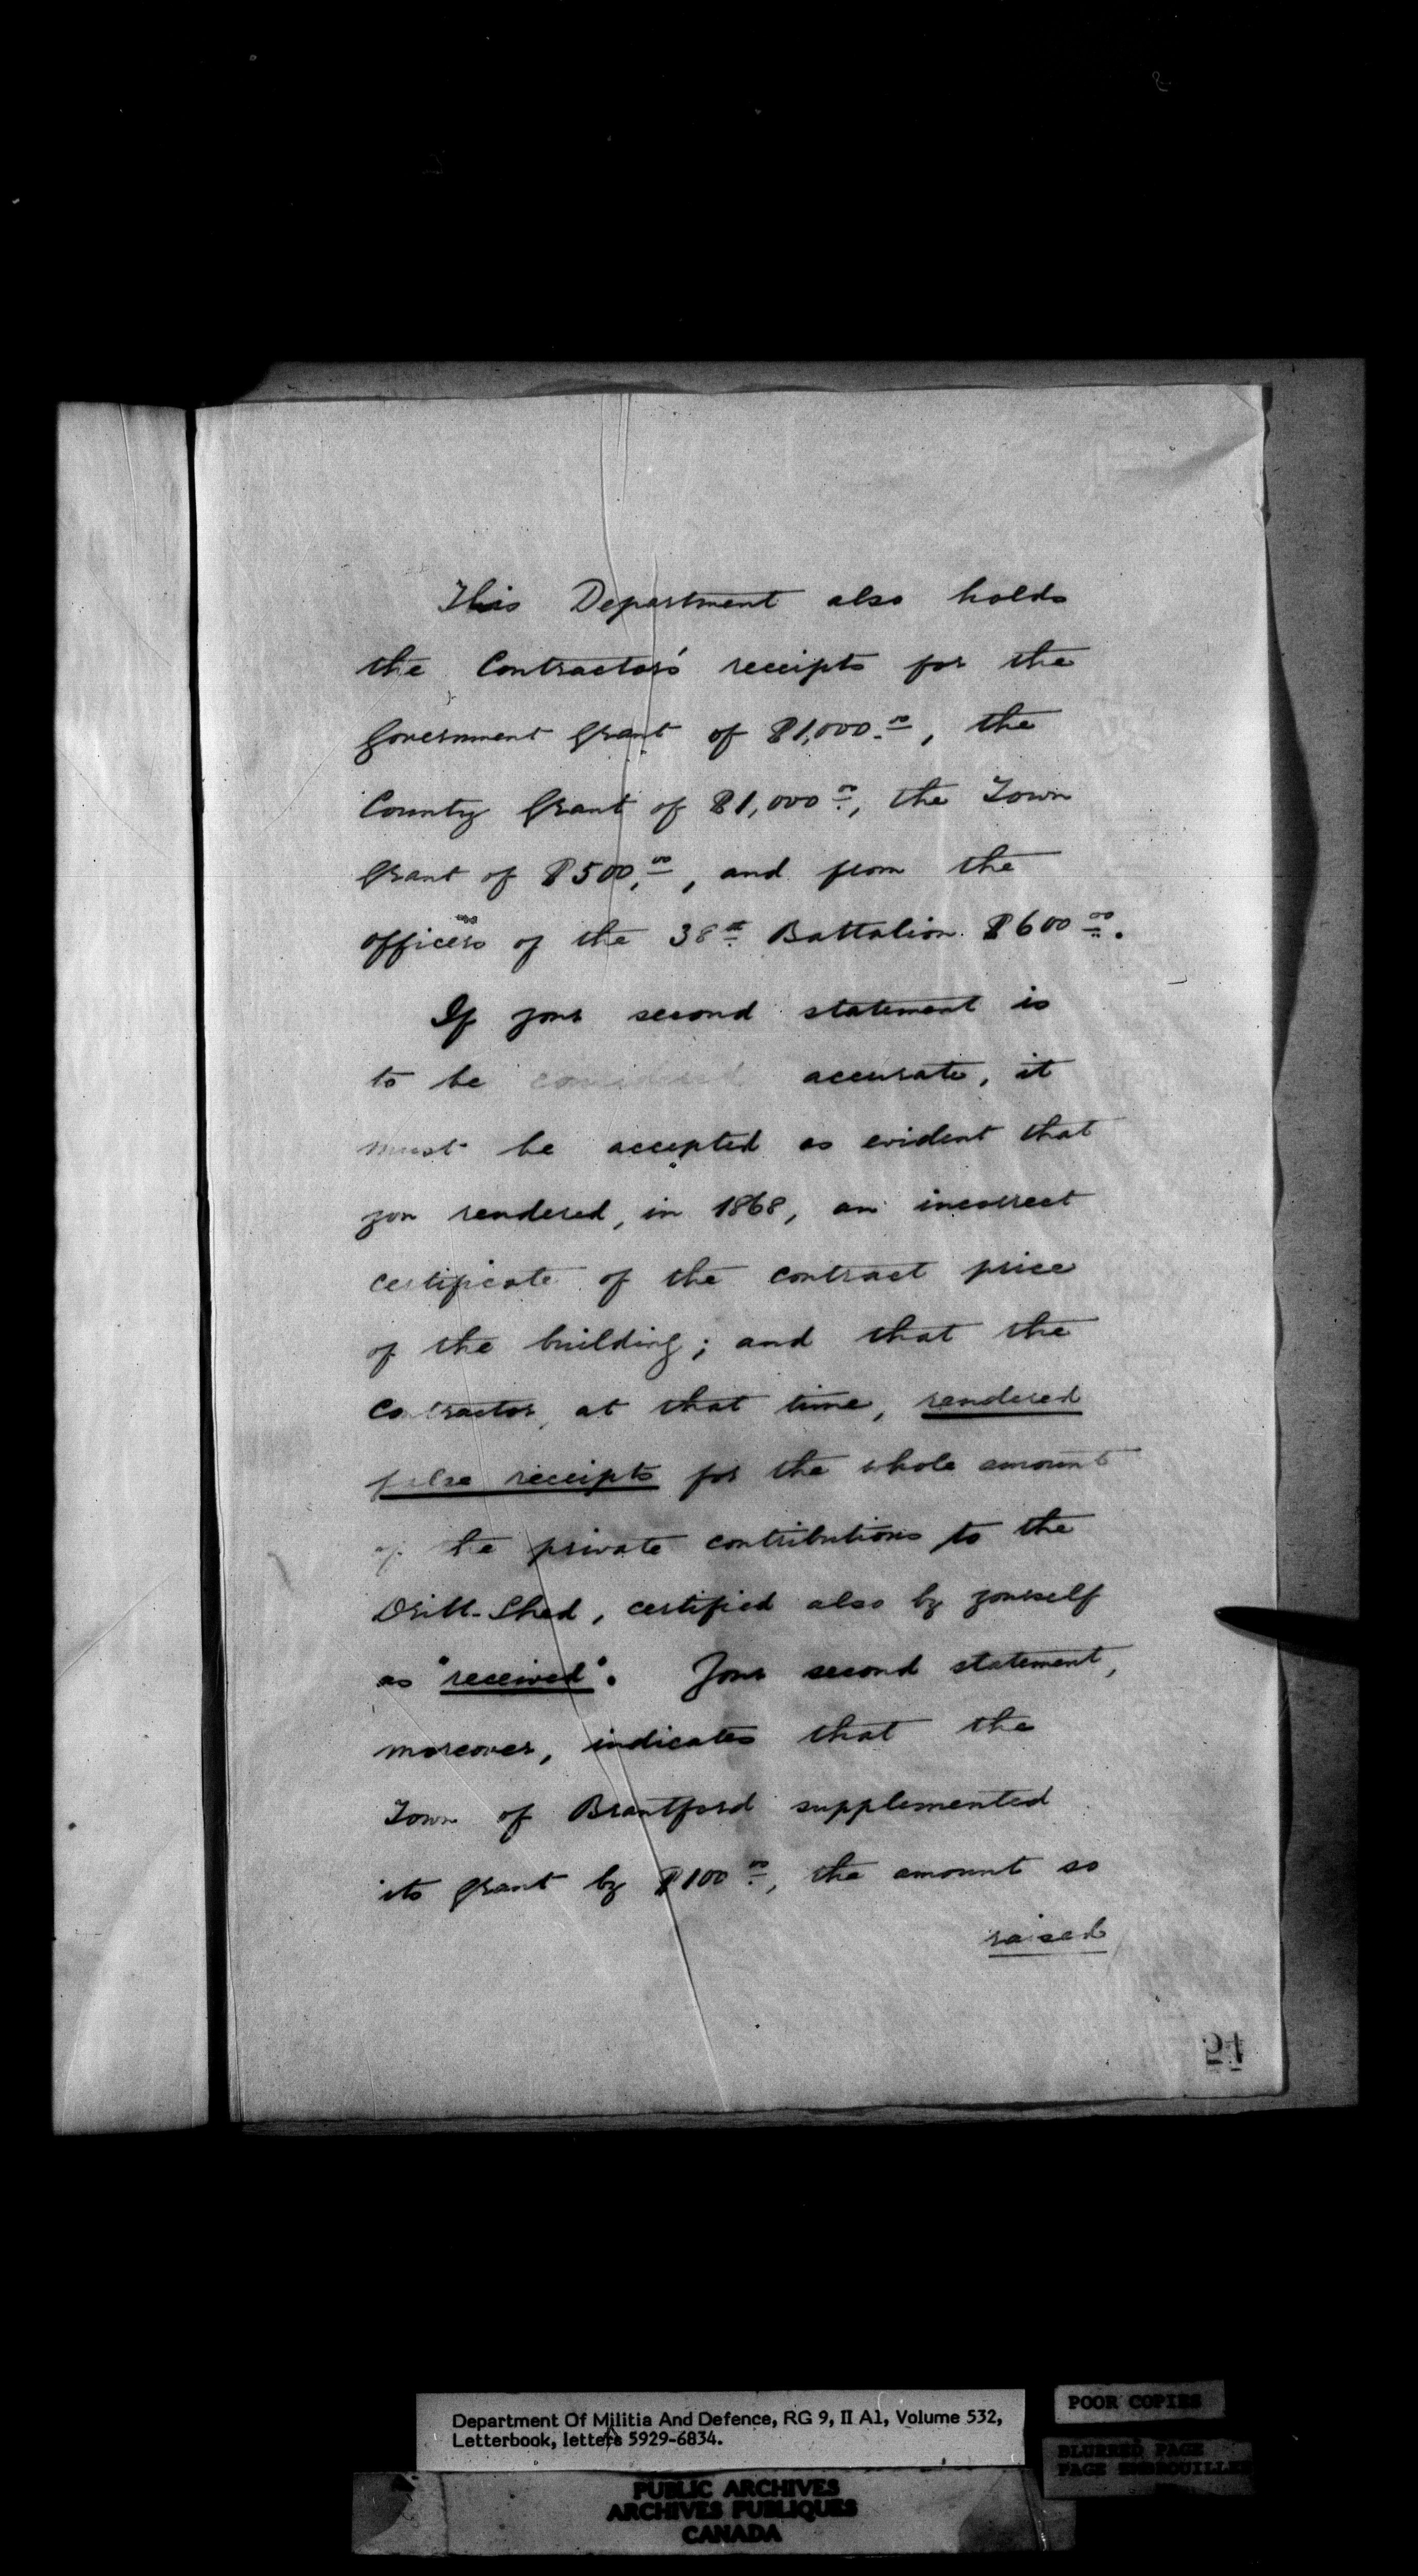 This Department also holds
the Contractor's receipts for the
Government Grant of $1,000.00, the
County Grant of $1,000.00, the Town
Grant of $500.00, and from the
officers of the 38th Battalion $600.00.
If your second statement is
to be considered accurate, it
must be accepted as evident that
you rendered, in 1868, an incorrect
certificate of the contract price
of the building; and that the
Contractor, at that time, rendered
false receipts for the whole amount
of the private contributions to the
Drill-Shed, certified also by yourself
as "received". Your second statement,
moreover, indicates that the
Town of Brantford supplemented
its grant by $100.00, the amount so
raised
Department Of Militia And Defence, RG 9, II A1, Volume 532,
Letterbook, letters 5929-6834.
POOR COPIES
BLURRED PAGE
PAGE EMBROUILLEE
PUBLIC ARCHIVES
ARCHIVES PUBLIQUES
CANADA